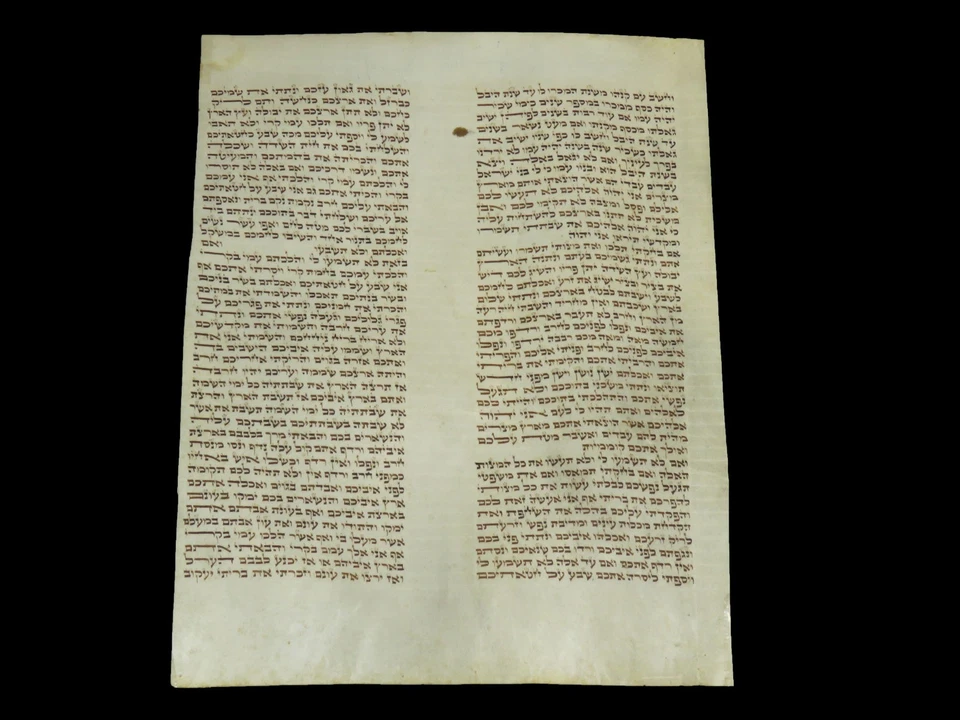 וחשב עם קנהו משנת המכרו לו עד שנת היבל
והיה כסף ממכרו במספר שנים כימי שכיר
יהיה עמו אם עוד רבות בשנים לפיהן ישיב
גאלתו מכסף מקנתו ואם מעט נשאר בשנים
עד שנת היבל וחשב לו כפי שניו ישיב את
גאלתו כשכיר שנה בשנה יהיה עמו לא ירדנו
בפרך לעיניך ואם לא יגאל באלה ויצא
בשנת היבל הוא ובניו עמו כי לי בני ישראל
עבדים עבדי הם אשר הוצאתי אותם מארץ
מצרים אני יהוה אלהיכם לא תעשו לכם
אלילם ופסל ומצבה לא תקימו לכם ואבן
משכית לא תתנו בארצכם להשתחות עליה
כי אני יהוה אלהיכם את שבתתי תשמרו
ומקדשי תיראו אני יהוה
אם בחקתי תלכו ואת מצותי תשמרו ועשיתם
אתם ונתתי גשמיכם בעתם ונתנה הארץ
יבולה ועץ השדה יתן פריו והשיג לכם דיש
את בציר ובציר ישיג את זרע ואכלתם לחמכם
לשבע וישבתם לבטח בארצכם ונתתי שלום
בארץ ושכבתם ואין מחריד והשבתי חיה רעה
מן הארץ וחרב לא תעבר בארצכם ורדפתם
את איביכם ונפלו לפניכם לחרב ורדפו מכם
חמשה מאה ומאה מכם רבבה ירדפו ונפלו
איביכם לפניכם לחרב ופניתי אליכם והפריתי
אתכם והרביתי אתכם והקימתי את בריתי
אתכם ואכלתם ישן נושן וישן מפני חדש
תוציאו ונתתי משכני בתוככם ולא תגעל
נפשי אתכם והתהלכתי בתוככם והייתי לכם
לאלהים ואתם תהיו לי לעם אני יהוה
אלהיכם אשר הוצאתי אתכם מארץ מצרים
מהית להם עבדים ואשבר מטת עלכם
ואולך אתכם קוממיות
ואם לא תשמעו לי ולא תעשו את כל המצות
האלה ואם בחקתי תמאסו ואם את משפטי
תגעל נפשכם לבלתי עשות את כל מצותי
להפרכם את בריתי אף אני אעשה זאת לכם
והפקדתי עליכם בהלה את השחפת ואת
הקדחת מכלות עינים ומדיבת נפש וזרעתם
לריק זרעכם ואכלהו איביכם ונתתי פני בכם
ונגפתם לפני איביכם ורדו בכם שנאיכם ונסתם
ואין רדף אתכם ואם עד אלה לא תשמעו לי
ויספתי ליסרה אתכם שבע על חטאתיכם
ושברתי את גאון עזכם ונתתי את שמיכם
כברזל ואת ארצכם כנחשה ותם לריק
כחכם ולא תתן ארצכם את יבולה ועץ הארץ
לא יתן פריו ואם תלכו עמי קרי ולא תאבו
לשמע לי ויספתי עליכם מכה שבע כחטאתיכם
והשלחתי בכם את חית השדה ושכלה
אתכם והכריתה את בהמתכם והמעיטה
אתכם ונשמו דרכיכם ואם באלה לא תוסרו
לי והלכתם עמי קרי והלכתי אף אני עמכם
בקרי והכיתי אתכם גם אני שבע על חטאתיכם
והבאתי עליכם חרב נקמת נקם ברית ונאספתם
אל עריכם ושלחתי דבר בתוככם ונתתם ביד
אויב בשברי לכם מטה לחם ואפו עשר נשים
לחמכם בתנור אחד והשיבו לחמכם במשקל
ואכלתם ולא תשבעו ואם
בזאת לא תשמעו לי והלכתם עמי בקרי
והלכתי עמכם בחמת קרי ויסרתי אתכם אף
אני שבע על חטאתיכם ואכלתם בשר בניכם
ובשר בנתיכם תאכלו והשמדתי את במתיכם
והכרתי את חמניכם ונתתי את פגריכם על
פגרי גלוליכם וגעלה נפשי אתכם ונתתי
את עריכם חרבה והשמותי את מקדשיכם
ולא אריח בריח ניחחכם והשמתי אני את
הארץ ושממו עליה איביכם הישבים בה
ואתכם אזרה בגוים והריקתי אחריכם חרב
והיתה ארצכם שממה ועריכם יהיו חרבה
אז תרצה הארץ את שבתתיה כל ימי השמה
ואתם בארץ איביכם אז תשבת הארץ והרצת
את שבתתיה כל ימי השמה תשבת את אשר
לא שבתה בשבתתיכם בשבתכם עליה
והנשארים בכם והבאתי מרך בלבבם בארצת
איביהם ורדף אתם קול עלה נדף ונסו מנסת
חרב ונפלו ואין רדף וכשלו איש באחיו
כמפני חרב ורדף אין ולא תהיה לכם תקומה
לפני איביכם ואבדתם בגוים ואכלה אתכם
ארץ איביכם והנשארים בכם ימקו בעונם
בארצת איביכם ואף בעונת אבתם אתם
ימקו והתודו את עונם ואת עון אבתם במעלם
אשר מעלו בי ואף אשר הלכו עמי בקרי
אף אני אלך עמם בקרי והבאתי אתם
בארץ איביהם או אז יכנע לבבם הערל
ואז ירצו את עונם וזכרתי את בריתי יעקוב